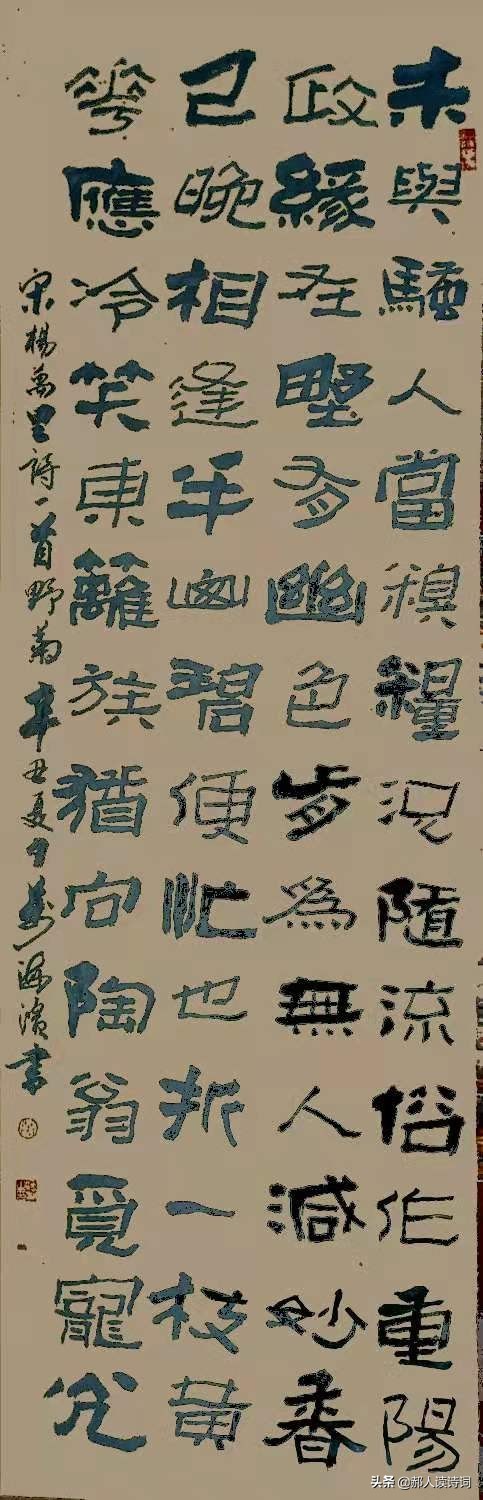 未與騷人當糗糧況随流俗作重陽
政緣在野有幽色肯為無人減妙香
已晚相逢半山碧便忙也折一枝黄
華應冷笑東籬族猶向陶翁覓寵光
宋楊萬里詩一首野菊辛丑夏海濱書
头条 @郝人读诗词